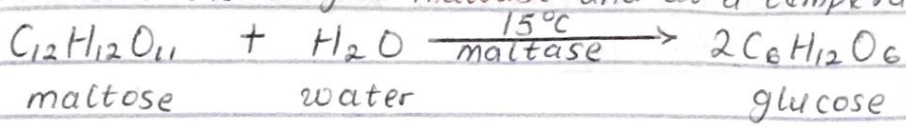 15°C
C₁₂H₁₂O₁₁ + H₂O maltase → 2C₆H₁₂O₆
maltose water glucose